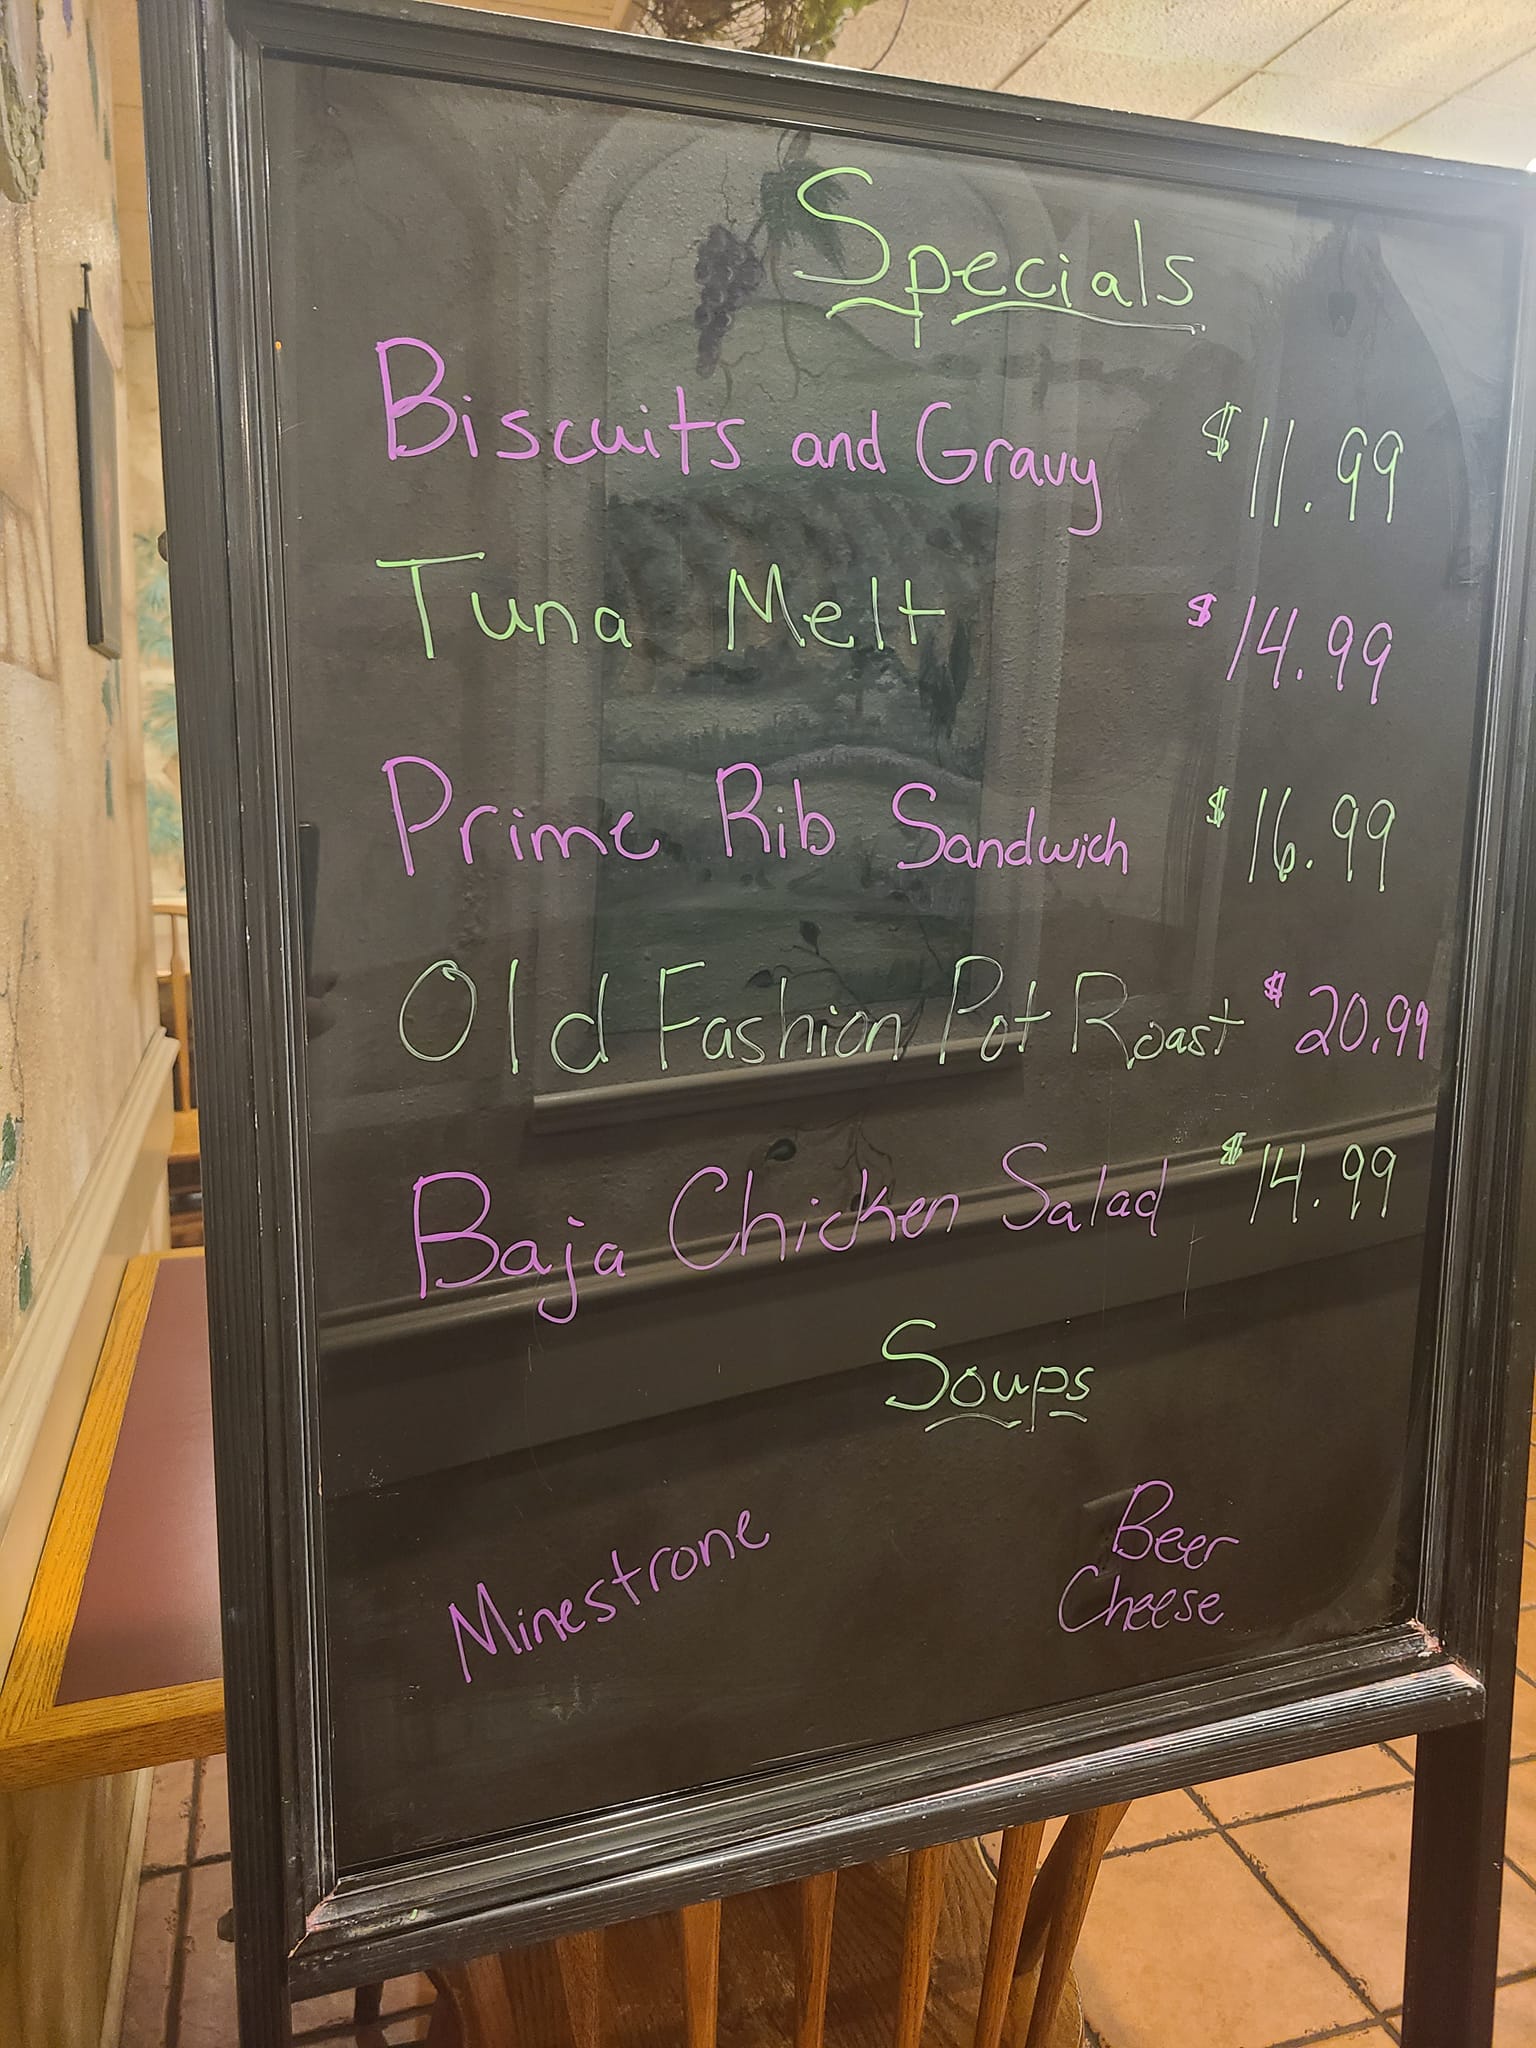 Specials
Biscuits and Gravy $11.99
Tuna Melt $14.99
Prime Rib Sandwich $16.99
Old Fashion Pot Roast $20.99
Baja Chicken Salad $14.99
Soups
Minestrone
Beer
Cheese